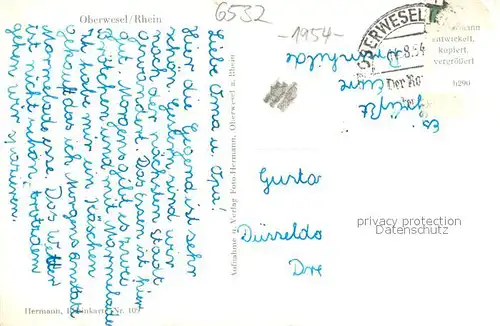 Oberwesel/Rhein
6532
-1954-
OBERWESEL
-4.8.54
Der Ro
mann
entwickelt,
kopiert,
vergrößert
6290
Liebe Oma u. Opa!
Hier die Gegend ist sehr
schön. Gestern sind wir
nach der nächsten Stadt
gewandert. Das Essen ist hier
gut. Morgens gibt es zwei
Brötchen und mit Marmelade
Ich habe mir ein Käschen
gekauft das ich Morgens anstatt
Marmelade esse. Das Wetter
ist nicht schön, trotzdem
gehen wir spazieren.
Es
grüßt
Eure
Aufnahme u. Verlag Foto-Hermann, Oberwesel a. Rhein
Gusta
Düsseldo
Dre
privacy protection
Datenschutz
Hermann, Nr. 109